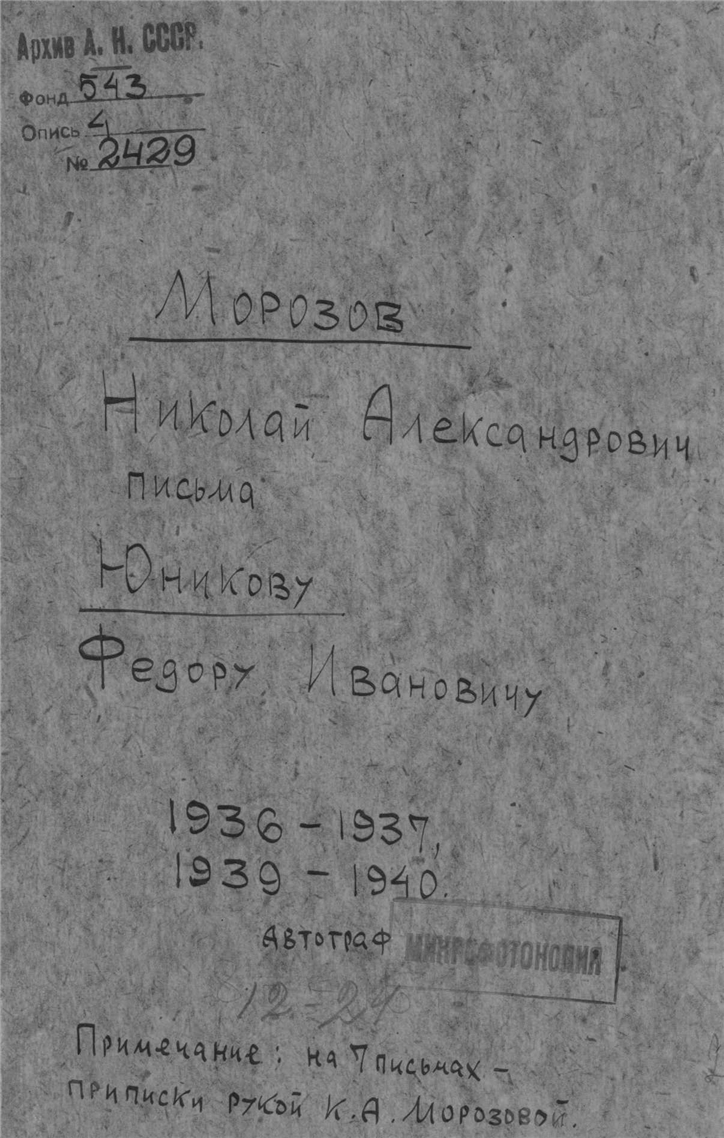 Архив А. Н. СССР.
Фонд 543
Опись 4
№ 2429
Морозов
Николай Александрович
письма
Юникову
Федору Ивановичу
1936 – 1937,
1939 – 1940.
Автограф
МИКРОФОТОКОПИЯ
12 = 24
Примечание: на 7 письмах –
приписки рукой К.А. Морозовой.